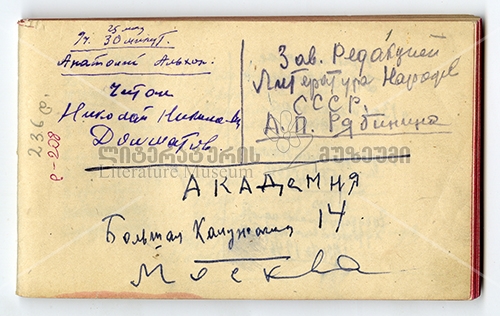 25 мая
9 ч. 30 минут.
Анатолий
Читал
Николай
Долматов
Зав. Редакцией
Литература Народов
СССР.
А. П. Рябинина
236 ф.
ლიტერატურის მუზეუმი
Literature Museum
АКАДЕМИЯ
Большая Калужская 14
Москва